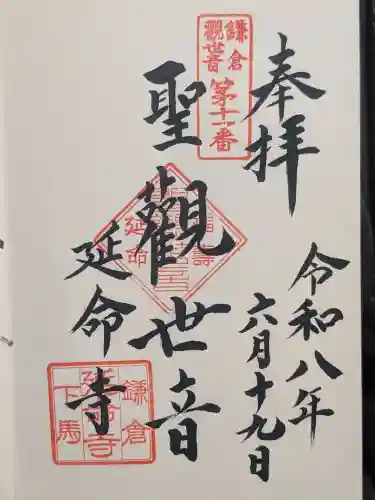 奉拝
令和八年
六月十九日
鎌倉
觀世音
第十一番
聖觀世音
延命
福壽
延命寺
鎌倉
延命寺
下馬